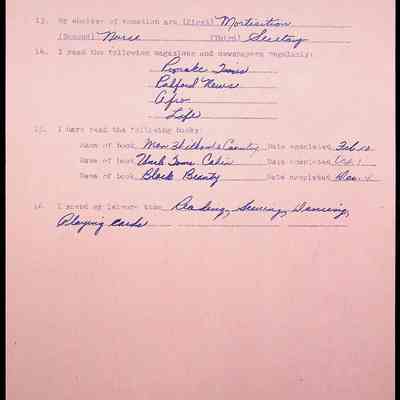 13. My choices of vocation are (First) Mortication
(Second) Nurse (Third) Secretary
14. I read the following magazines and newspapers regularly:
Roanoke Times
Radford News
Afro
Life
15. I have read the following books:
Name of book Men Without a Country Date completed Feb.
Name of book Uncle Toms Cabin Date completed
Name of book Black Beauty Date completed Dec. 4
16. I spend my leisure time Reading, Sewing, Dancing,
Playing cards